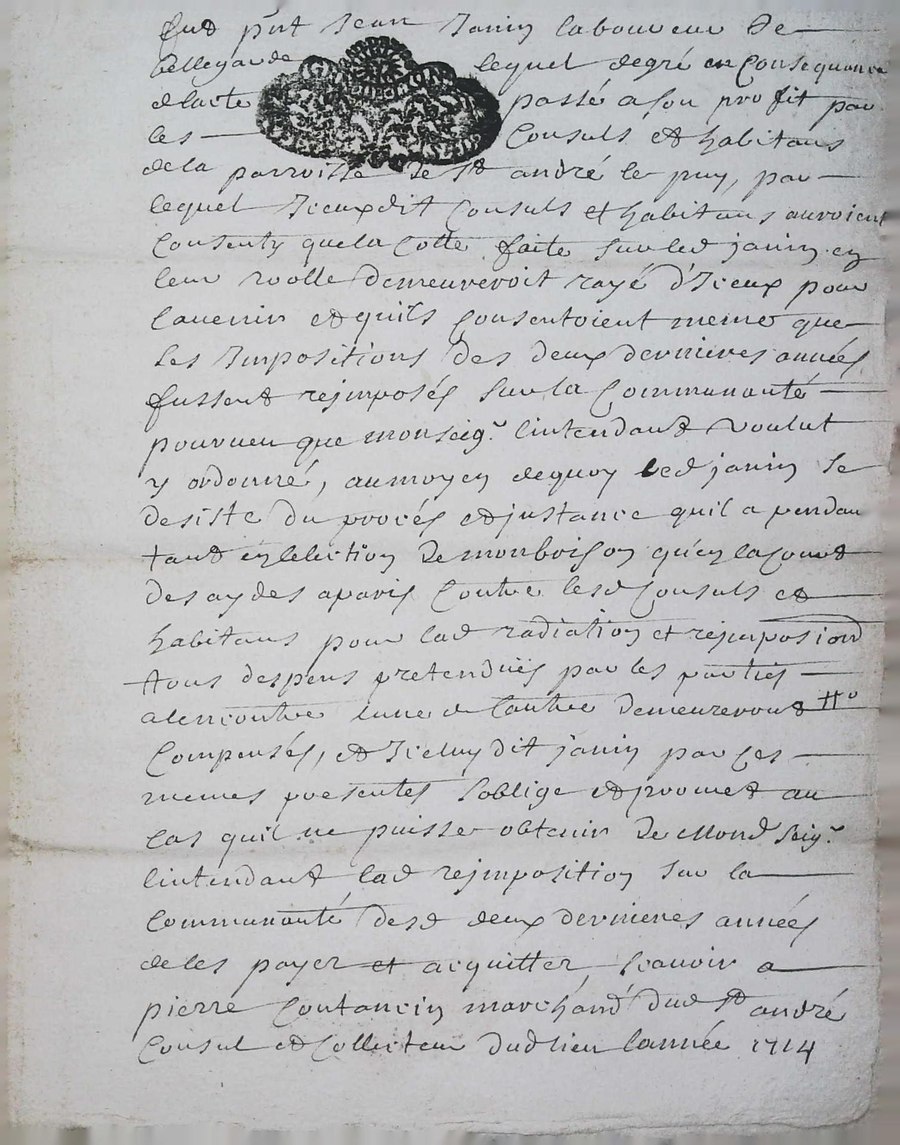 fud pnt Jean Janin laboureur de
bellegarde lequel degré en Consequance
de lacte passé a son profit par
les Consuls et habitans
de la parroisse de St andré le puy, par
lequel Iceuxdit Consuls et habitans auroient
Consenty que la Cotte faite sur led janin en
leur roolle demeureroit rayé d'Iceux pour
lauenir et quils Consentoient meme que
les Impositions des deux dernieres années
fussent rejmposés sur la Communauté
pourueu que monseigr. lintendant voulut
y ordonné, au moyen de quoy led janin se
desiste du procés et jnstance quil a pendan
tant en lelection de monbrison qu'en la Cour
des aydes a paris Contre lesd Consuls et
habitans pour lad radiation et rejmposiond
tous despens pretendües par les parties
alencontre lune de lautre demeureront
Compensés, et Iceluy dit janin par Ces
memes presentes soblige et promet au
Cas quil ne puisse obtenir de mond seigr.
lintendant lad rejmposition sur la
Communauté desd deux dernieres années
de les payer et acquitter, scauoir a
pierre Coutancin marchand dud St andré
Consul et Collecteur dud lieu lannée 1714